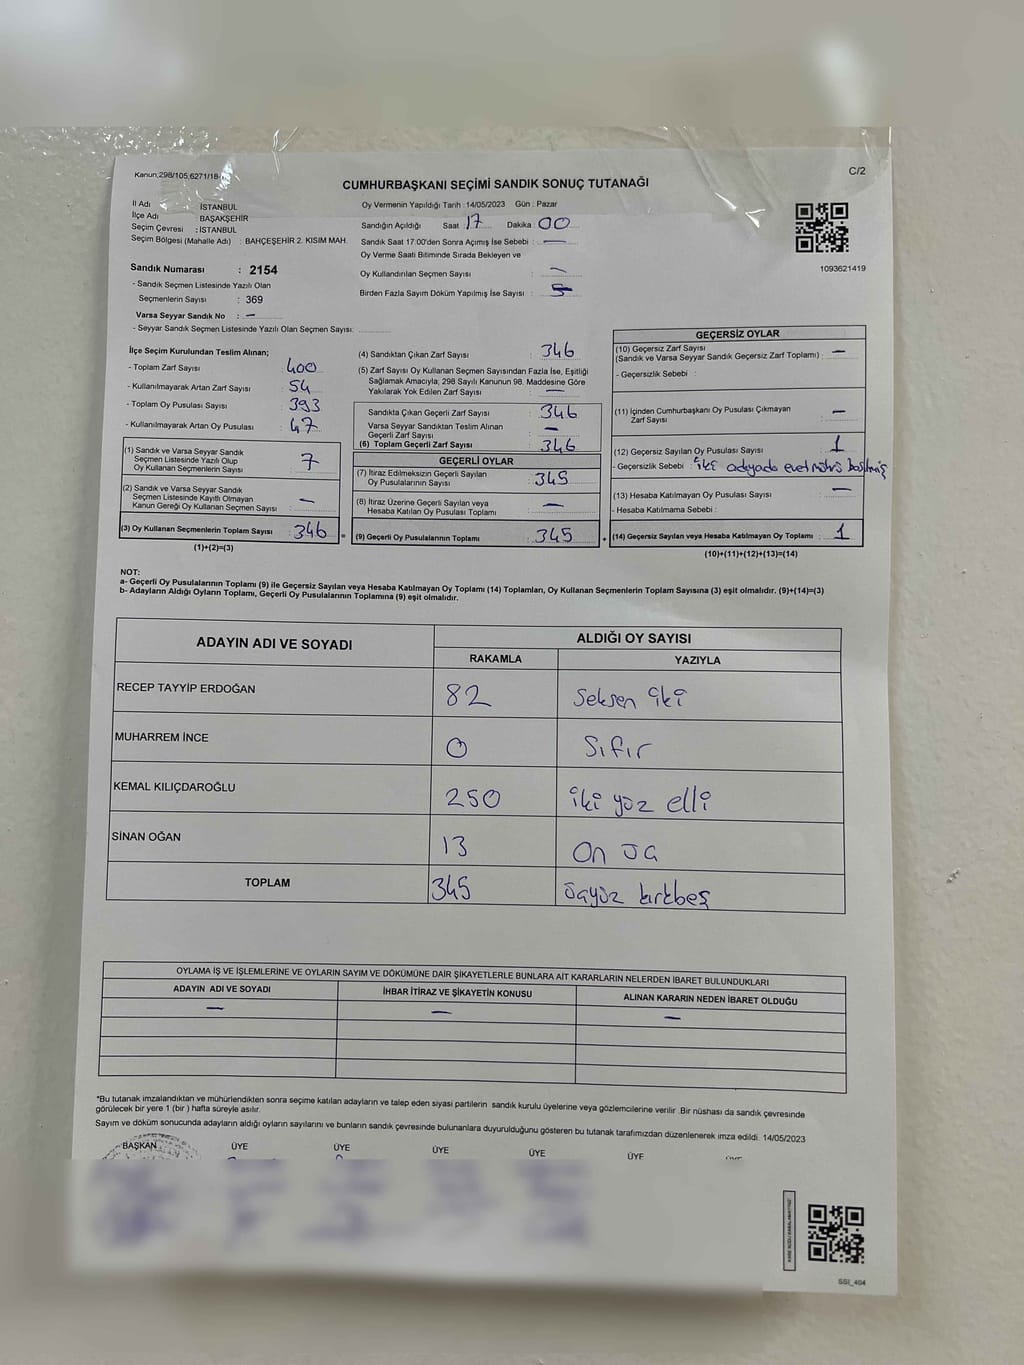 Kanun,298/105,6271/18
C/2
CUMHURBAŞKANI SEÇİMİ SANDIK SONUÇ TUTANAĞI
İl Adı İSTANBUL
İlçe Adı BAŞAKŞEHİR
Seçim Çevresi : İSTANBUL
Seçim Bölgesi (Mahalle Adı) : BAHÇEŞEHİR 2. KISIM MAH.
Sandık Numarası : 2154
- Sandık Seçmen Listesinde Yazılı Olan
Seçmenlerin Sayısı : 369
Varsa Seyyar Sandık No : —
- Seyyar Sandık Seçmen Listesinde Yazılı Olan Seçmen Sayısı:
Oy Vermenin Yapıldığı Tarih :14/05/2023 Gün : Pazar
Sandığın Açıldığı Saat : 17 Dakika : 00
Sandık Saat 17:00'den Sonra Açımış İse Sebebi : —
Oy Verme Saati Bitiminde Sırada Bekleyen ve
Oy Kullandırılan Seçmen Sayısı : —
Birden Fazla Sayım Döküm Yapılmış İse Sayısı :
1093621419
İlçe Seçim Kurulundan Teslim Alınan;
- Toplam Zarf Sayısı : 400
- Kullanılmayarak Artan Zarf Sayısı : 54
- Toplam Oy Pusulası Sayısı : 393
- Kullanılmayarak Artan Oy Pusulası : 47
(1) Sandık ve Varsa Seyyar Sandık
Seçmen Listesinde Yazılı Olup
Oy Kullanan Seçmenlerin Sayısı : 7
(2) Sandık ve Varsa Seyyar Sandık
Seçmen Listesinde Kayıtlı Olmayan
Kanun Gereği Oy Kullanan Seçmen Sayısı : —
(3) Oy Kullanan Seçmenlerin Toplam Sayısı : 346 =
(1)+(2)=(3)
(4) Sandıktan Çıkan Zarf Sayısı : 346
(5) Zarf Sayısı Oy Kullanan Seçmen Sayısından Fazla İse, Eşitliği
Sağlamak Amacıyla, 298 Sayılı Kanunun 98. Maddesine Göre
Yakılarak Yok Edilen Zarf Sayısı : —
Sandıkta Çıkan Geçerli Zarf Sayısı : 346
Varsa Seyyar Sandıktan Teslim Alınan
Geçerli Zarf Sayısı : —
(6) Toplam Geçerli Zarf Sayısı : 346
GEÇERLİ OYLAR
(7) İtiraz Edilmeksizin Geçerli Sayılan
Oy Pusulalarının Sayısı : 345
(8) İtiraz Üzerine Geçerli Sayılan veya
Hesaba Katılan Oy Pusulası Toplamı : —
(9) Geçerli Oy Pusulalarının Toplamı : 345 +
GEÇERSİZ OYLAR
(10) Geçersiz Zarf Sayısı
(Sandık ve Varsa Seyyar Sandık Geçersiz Zarf Toplamı) : —
- Geçersizlik Sebebi :
(11) İçinden Cumhurbaşkanı Oy Pusulası Çıkmayan
Zarf Sayısı : —
(12) Geçersiz Sayılan Oy Pusulası Sayısı : 1
- Geçersizlik Sebebi : iki adyada evet mührü basılmış
(13) Hesaba Katılmayan Oy Pusulası Sayısı : —
- Hesaba Katılmama Sebebi :
(14) Geçersiz Sayılan veya Hesaba Katılmayan Oy Toplamı : 1
(10)+(11)+(12)+(13)=(14)
NOT:
a- Geçerli Oy Pusulalarının Toplamı (9) ile Geçersiz Sayılan veya Hesaba Katılmayan Oy Toplamı (14) Toplamları, Oy Kullanan Seçmenlerin Toplam Sayısına (3) eşit olmalıdır. (9)+(14)=(3)
b- Adayların Aldığı Oyların Toplamı, Geçerli Oy Pusulalarının Toplamına (9) eşit olmalıdır.
ADAYIN ADI VE SOYADI ALDIĞI OY SAYISI
RAKAMLA YAZIYLA
RECEP TAYYİP ERDOĞAN 82 Seksen iki
MUHARREM İNCE 0 Sıfır
KEMAL KILIÇDAROĞLU 250 iki yüz elli
SİNAN OĞAN 13 On üç
TOPLAM 345 üçyüz kırkbeş
OYLAMA İŞ VE İŞLEMLERİNE VE OYLARIN SAYIM VE DÖKÜMÜNE DAİR ŞİKAYETLERLE BUNLARA AİT KARARLARIN NELERDEN İBARET BULUNDUKLARI
ADAYIN ADI VE SOYADI İHBAR İTİRAZ VE ŞİKAYETİN KONUSU ALINAN KARARIN NEDEN İBARET OLDUĞU
— — —
*Bu tutanak imzalandıktan ve mühürlendikten sonra seçime katılan adayların ve talep eden siyasi partilerin sandık kurulu üyelerine veya gözlemcilerine verilir .Bir nüshası da sandık çevresinde
görülecek bir yere 1 (bir ) hafta süreyle asılır.
Sayım ve döküm sonucunda adayların aldığı oyların sayılarını ve bunların sandık çevresinde bulunanlara duyurulduğunu gösteren bu tutanak tarafımızdan düzenlenerek imza edildi. 14/05/2023
BAŞKAN ÜYE ÜYE ÜYE ÜYE ÜYE
SSI_404